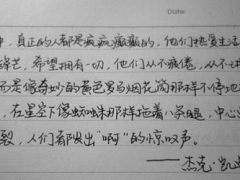 Date:
中，真正的人都是疯疯癫癫的，他们热爱生活
光芒，希望拥有一切，他们从不疲倦，从不
而是像奇妙的黄色罗马烟花筒那样不停地
，在星空下像蜘蛛那样拖着八条腿，中心
裂，人们都发出“啊”的惊叹声。
——杰克·凯